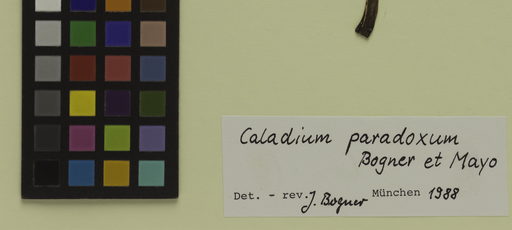 Caladium paradoxum
Bogner et Mayo
Det. - rev. J. Bogner München 1988